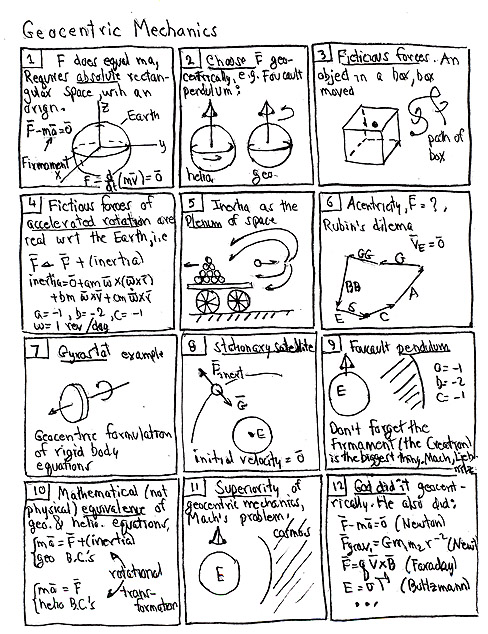 Geocentric Mechanics
1 F does equal ma,
Requires absolute rectan-
gular space, with an
origin.
Z
Earth
F̄-mā=ō
y
Firmament
x
F̄ = d/dt (mv̄) = ō
2 Choose F̄ geo-
centrically, e.g. Foucault
pendulum:
helio
geo-
3 Ficticious forces. An
object in a box, box
moved
path of
box
4 Fictious forces of
accelerated rotation are
real wrt the Earth, i.e
F̄ ← F̄ + (inertia)
inertia=ō+am w̄×(w̄×r̄)
+bm w̄×v̄+cm w̄×r̄
a=-1, b=-2, c=-1
w=1 rev/day
5 Inertia as the
Plenum of space
6 Acentricity, F̄=?,
Rubin's dilema
V̄E=ō
GG
G
BB
A
E
S
C
7 Gyrostat example
Geocentric formulation
of rigid body
equations
8 Stationary satellite
F̄inert
Ḡ
E
initial velocity = ō
9 Foucault pendulum
E
a=-1
b=-2
c=-1
Don't forget the
Firmament (the Creation)
is the biggest thing, Mach,
10 Mathematical (not
physical) equivalence of
geo. & helio. equations,
mā=F̄+(inertia)
geo B.C.'s
rotational
trans-
formation
mā = F̄
helio B.C.'s
11 Superiority of
geocentric mechanics,
Mach's problem,
cosmos
E
12 God did it geocent-
rically. He also did:
F̄-mā=ō (Newton)
F̄grav=Gm₁m₂r⁻² (Newt)
F̄=qV×B (Faraday)
E=σT⁴ (Boltzmann)
...